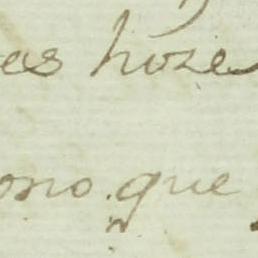 as hoze
ono. que